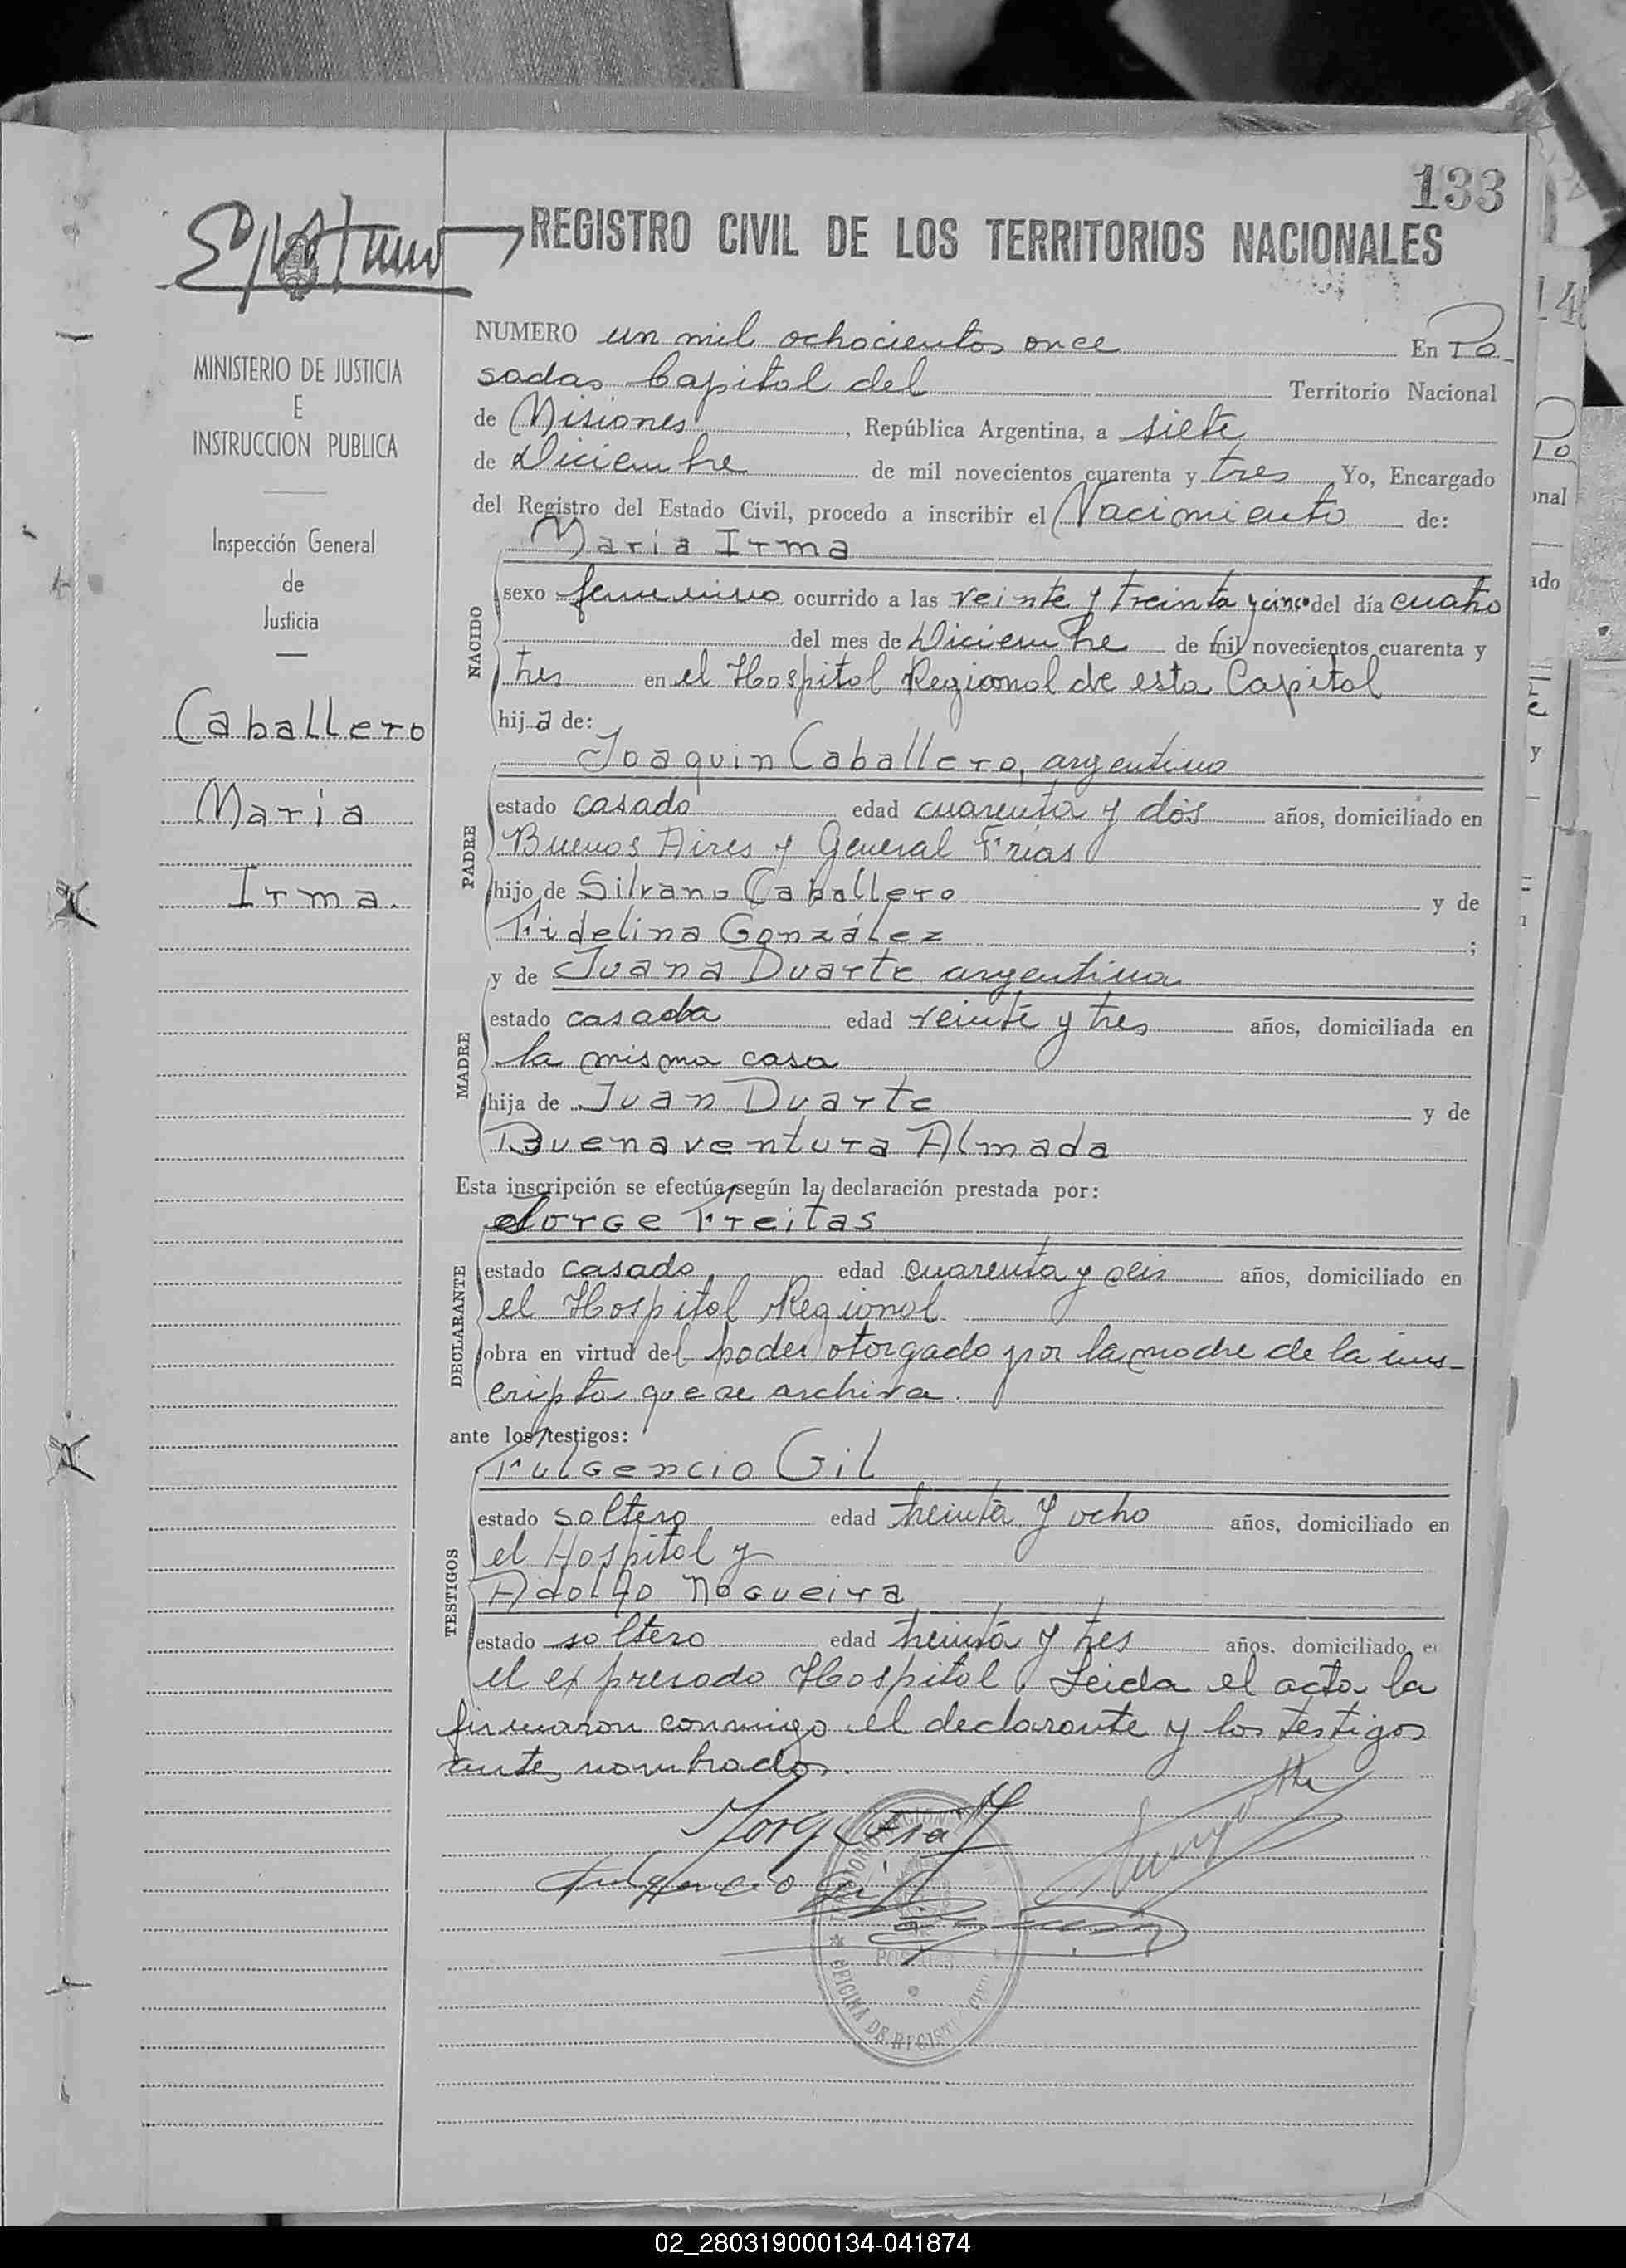 133
REGISTRO CIVIL DE LOS TERRITORIOS NACIONALES
MINISTERIO DE JUSTICIA
E
INSTRUCCION PUBLICA
Inspección General
de
Justicia
Caballero
María
Irma.
NUMERO un mil ochocientos once En Po-
sadas Capital del Territorio Nacional
de Misiones, República Argentina, a siete
de Diciembre de mil novecientos cuarenta y tres Yo, Encargado
del Registro del Estado Civil, procedo a inscribir el Nacimiento de:
María Irma
NACIDO
sexo femenino ocurrido a las veinte y treinta y cinco del día cuatro
del mes de Diciembre de mil novecientos cuarenta y
tres en el Hospital Regional de esta Capital
hija de:
Joaquin Caballero, argentino
PADRE
estado casado edad cuarenta y dos años, domiciliado en
Buenos Aires y General Frias
hijo de Silvano Caballero y de
Fidelina González ;
y de Juana Duarte argentina
MADRE
estado casada edad veinte y tres años, domiciliada en
la misma casa
hija de Juan Duarte y de
Buenaventura Almada
Esta inscripción se efectúa según la declaración prestada por:
Jorge Freitas
DECLARANTE
estado casado edad cuarenta y seis años, domiciliado en
el Hospital Regional
obra en virtud del poder otorgado por la madre de la ins-
cripta que se archiva.
ante los testigos:
Fulgencio Gil
TESTIGOS
estado soltero edad treinta y ocho años, domiciliado en
el Hospital y
Adolfo Nogueira
estado soltero edad treinta y tres años. domiciliado e
el expresado Hospital. Leida el acta la
firmaron conmigo el declarante y los testigos
antes nombrados.
Fulgencio Gil
POSADAS
OFICINA DE REGISTRO CIVIL
02_280319000134-041874